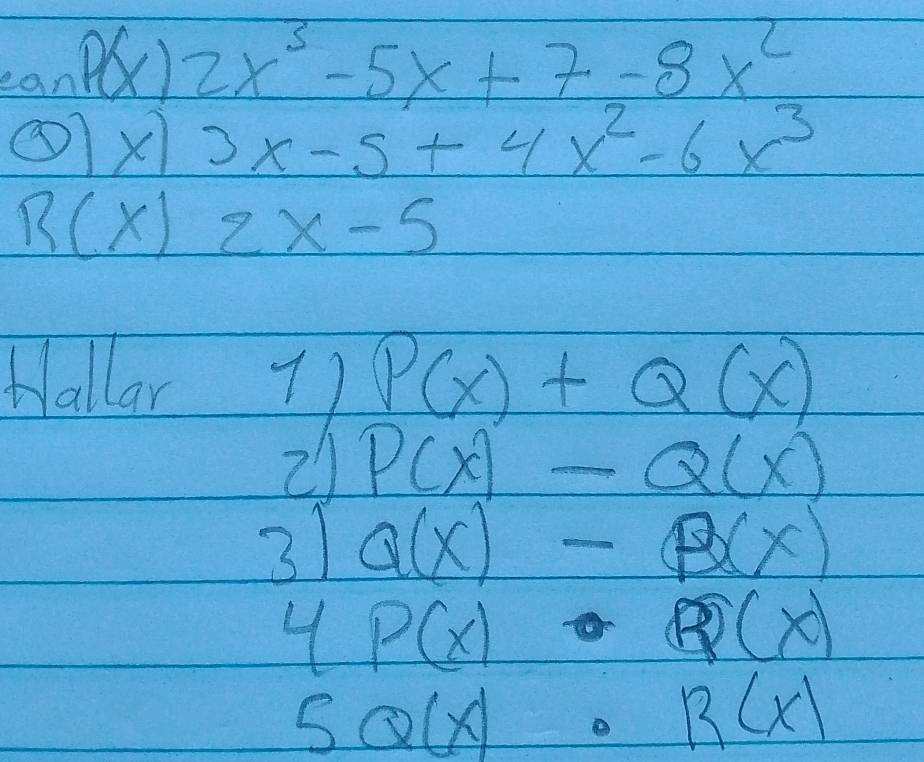 ean P(x) 2x³ - 5x + 7 - 8x²
Q(x) 3x - 5 + 4x² - 6x³
R(x) 2x - 5
Hallar 1) P(x) + Q(x)
2) P(x) - Q(x)
3) Q(x) - R(x)
4 P(x) • R(x)
5 Q(x) . R(x)